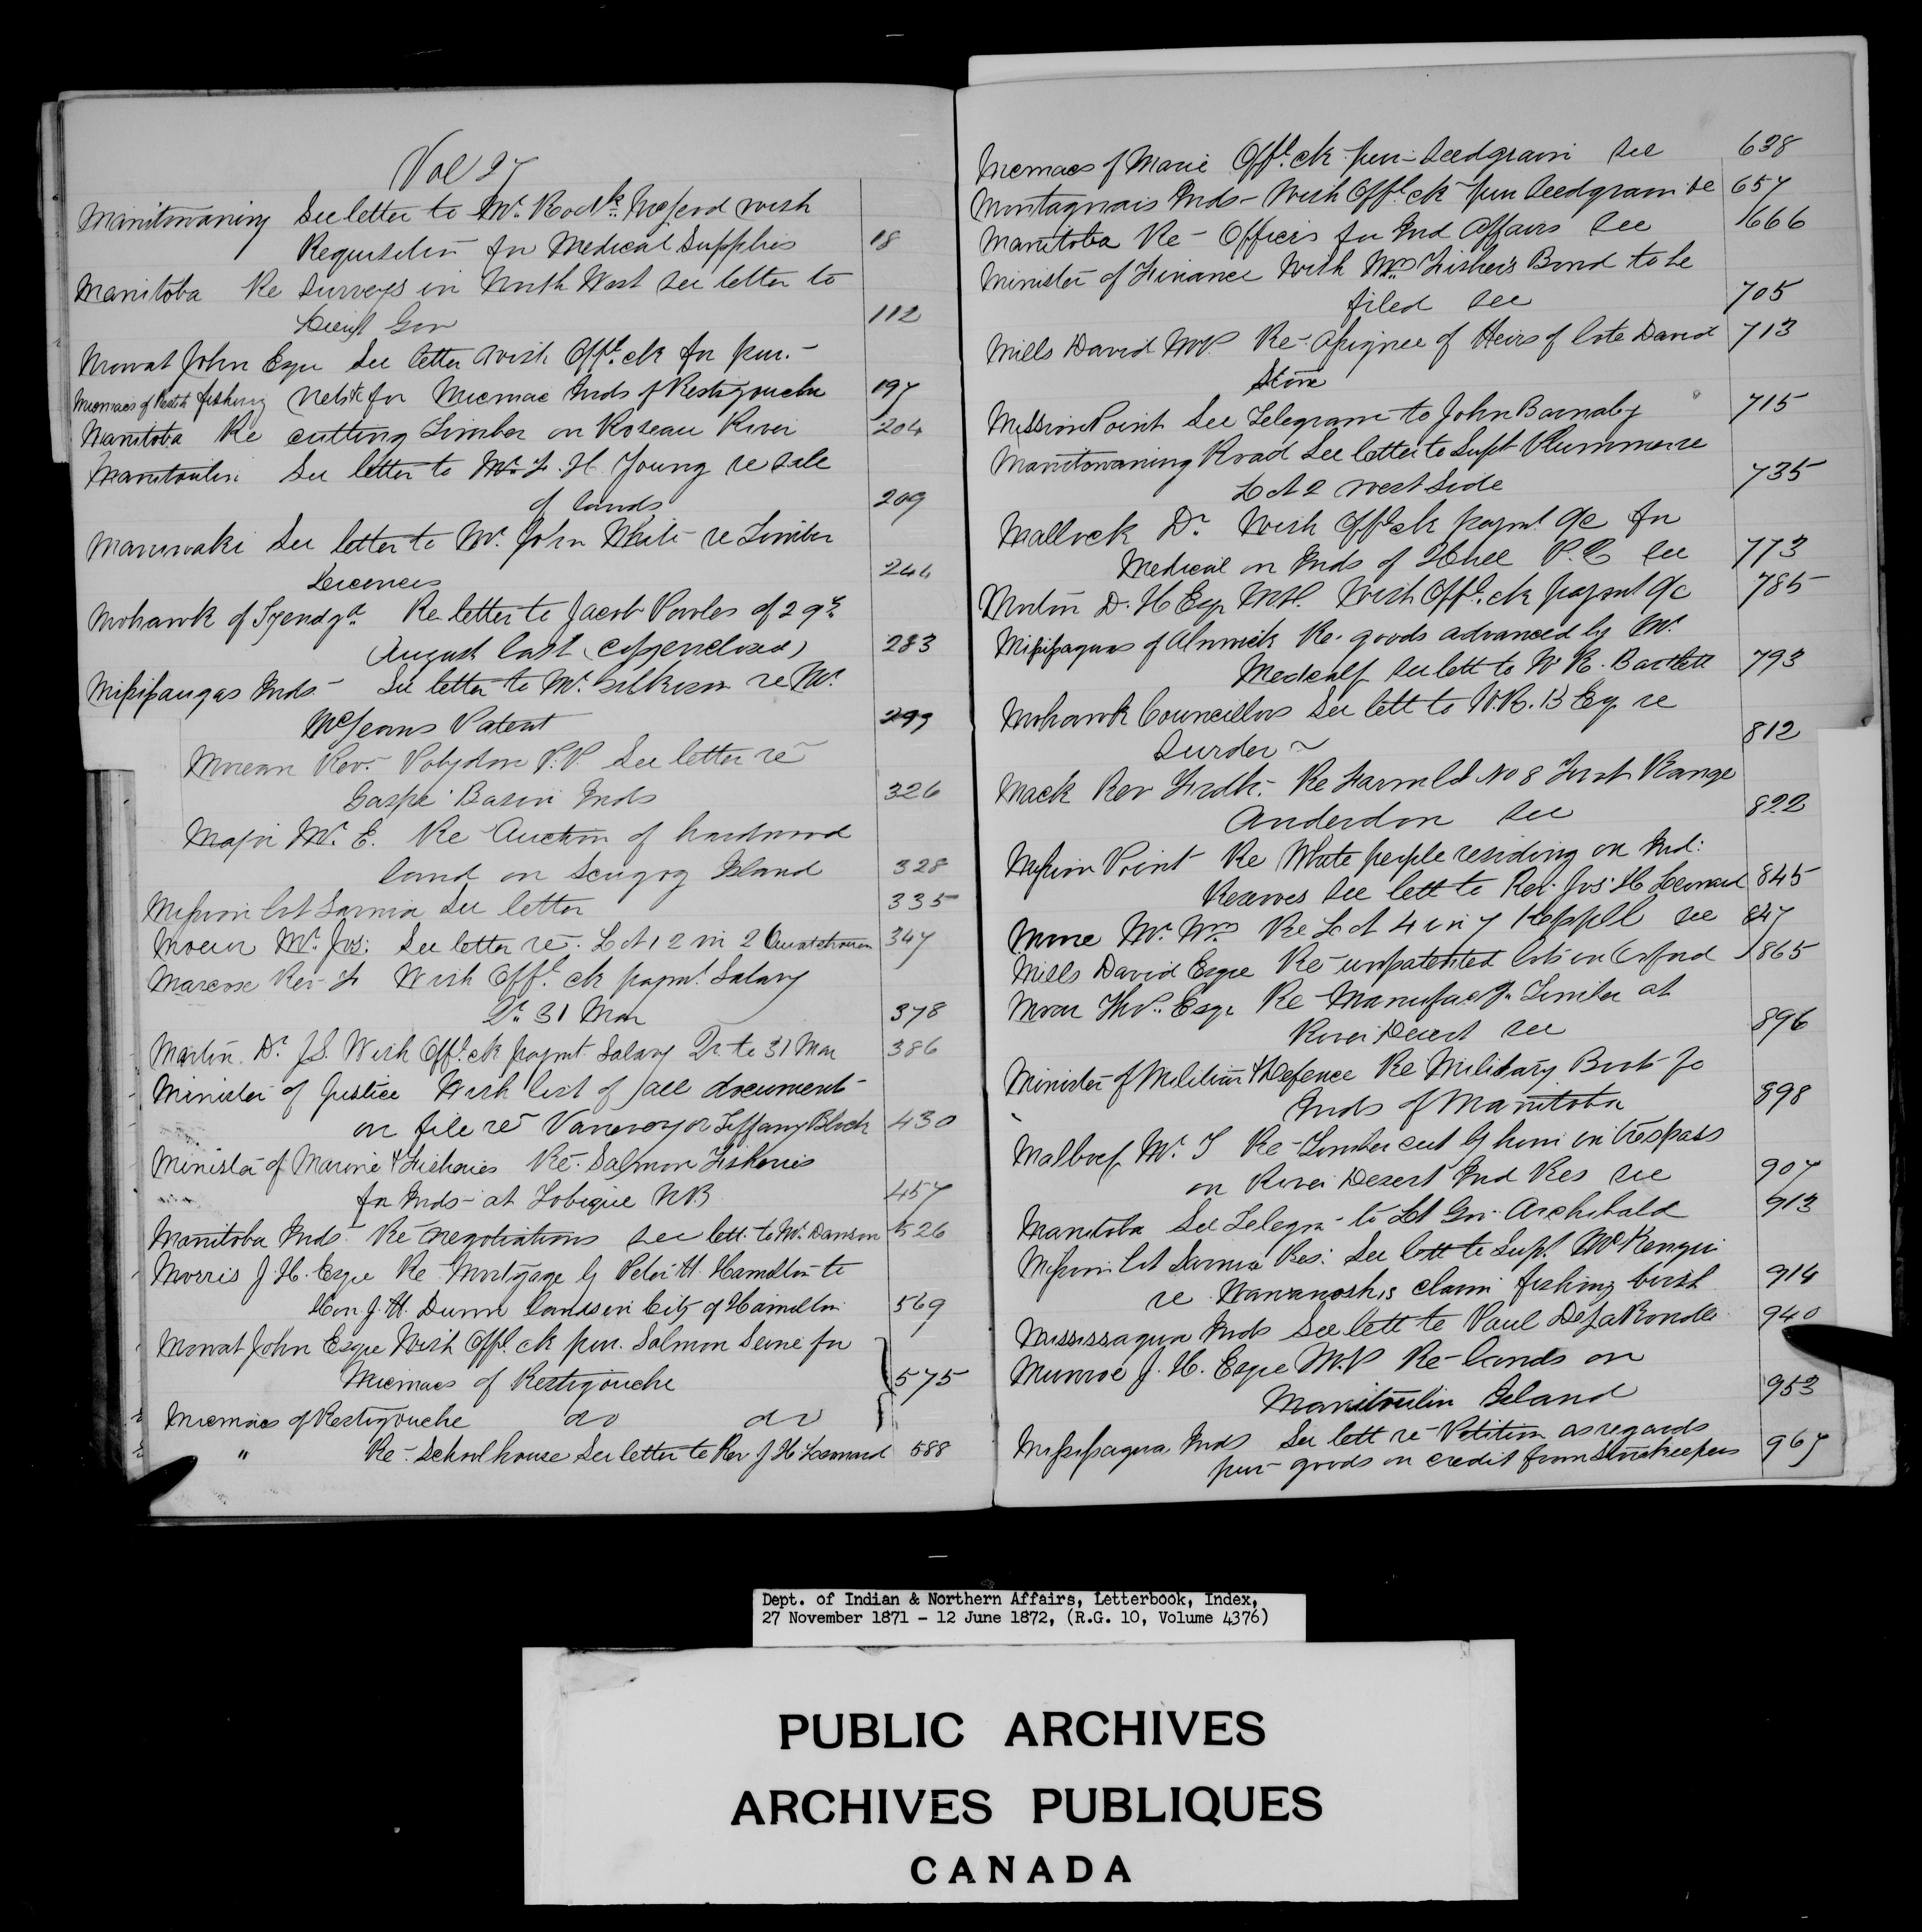 Vol 27
Manitowaning See letter to Mr. Rodk. McLeod with
Requisition for Medical Supplies 18
Manitoba Re Surveys in North West see letter to
Lieut Gov 112
Mowat John Esqre See letter with Offl. ck for pur.-
Micmacs of Restih fishing nets &c for Micmac Inds of Restigouche 197
Manitoba Re cutting Timber on Roseau River 204
Manitoulin See letter to Mr. F. H. Young re sale
of lands 209
Maniwaki See letter to Mr. John White re Timber
Licences 244
Mohawk of Tyendga. Re letter to Jacob Powles of 29th
August last (copy enclosed) 283
Missisaugas Inds- See letter to Mr. Gilkison re Mr.
McLeans Patent 299
Moreau Rev. Polydore P.P. See letter re
Gaspe Basin Inds 326
Major Mr. E. Re Auction of hardwood
land on Scugog Island 328
Mission lot Sarnia See letter 335
Mr. Jos: See letter re. Lot 12 in 2 347
Marcoux Rev- F With Offl. ck paymt. Salary
Qr. 31 Mar 378
Martin Dr. J.S. With Offl. ck paymt. Salary Qr. to 31 Mar 386
Minister of Justice With list of all documents
on file re Vanevery or Tiffany Block 430
Minister of Marine & Fisheries Re. Salmon Fisheries
for Inds- at Tobique N.B. 457
Manitoba Inds- Re negotiations see lett. to Mr. Dawson 526
Morris J. H. Esqre Re Mortgage by Peter H. Hamilton to
Hon. J. H. Dunn lands in City of Hamilton 569
Mowat John Esqre With Offl. ck pur. Salmon Seine for
Micmacs of Restigouche 575
Micmacs of Restigouche do do
" Re- School house See letter to Rev J H Leonard 588
Micmacs of Maria Offl. ck- pur- Seedgrain see 638
Montagnais Inds- With Offl. ck- pur Seedgrain se 657
Manitoba Re- Officers for Ind Affairs see 666
Minister of Finance With Wm. Fisher's Bond to be
filed see 705
Mills David M.P. Re- Assignee of Heirs of late David 713
Stone
Mission Point See Telegram to John Barnaby 715
Manitowaning Road See letter to Supt Plummer re
Lot 2 west side 735
Mallock Dr. With Offl. ck paymt. a/c for
Medical on Inds of Hull P.Q see 773
Morton D. H Esqr M.P. With Offl. ck paymt a/c 785
Missisaguas of Alnwick Re. goods advanced by Mr.
Medcalf see lett to W. R. Bartlett 793
Mohawk Councillors See lett to W.R.B Esq. re
Surder ~ 812
Mack Rev Fredk. Re Farm Lot No 8 First Range
Anderdon see 822
Mission Point Re White people residing on Ind:
Reserves see lett to Rev. Jos: H Leonard 845
Moore Mr. Wm Re Lot 4 in 7 Keppel see 847
Mills David Esqre Re- unpatented lots in Orford 865
Moore Thos. Esqr Re- Manufacg. Timber at
River Desert see 896
Minister of Militia & Defence Re Military Boots fo
Inds of Manitoba 898
Malboef Mr. J Re- Timber cut by him in trespass
on River Desert Ind Res see 907
Manitoba See Telegm- to Lt Gov- Archibald 913
Mission lot Sarnia Res: See lett to Supt. McKenzie
re Wawanosh's claim fishing birth 914
Mississagua Inds See lett to Paul DeLaRonde 940
Munroe J. H. Esqre M.P Re- lands on
Manitoulin Island 953
Missisagua Inds See lett re- Petition as regards
pur- goods on credit from Storekeepers 967
Dept. of Indian & Northern Affairs, Letterbook, Index,
27 November 1871 - 12 June 1872, (R.G. 10, Volume 4376)
PUBLIC ARCHIVES
ARCHIVES PUBLIQUES
CANADA